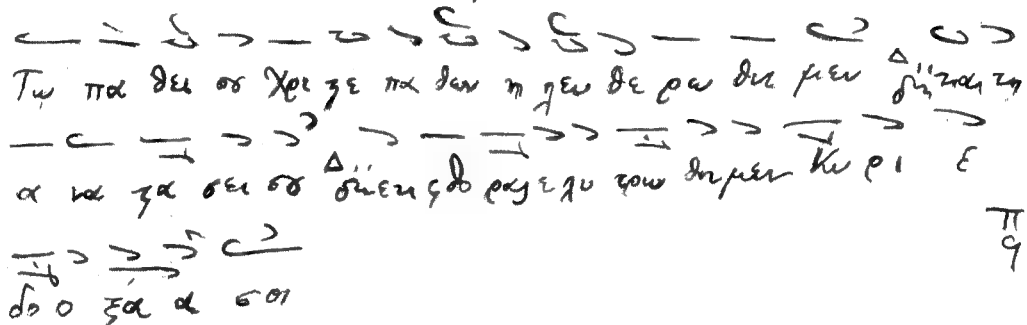 Τω πα θει σου Χρι στε πα θων η λευ θε ρω θη μεν Δ και τη
α να στα σει σου Δ εκ φθο ρας ε λυ τρω θη μεν Κυ ρι ε
δο ο ξα α σοι